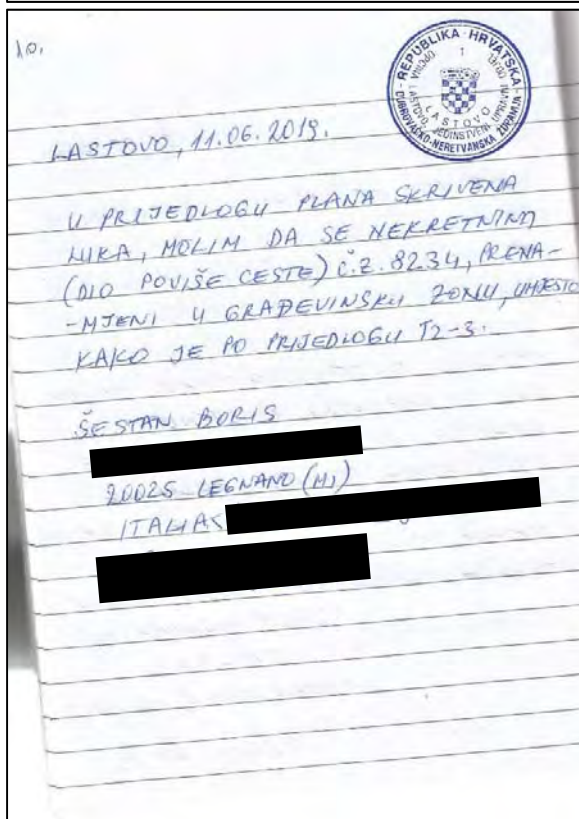 10.
REPUBLIKA HRVATSKA
1
DUBROVAČKO-NERETVANSKA ŽUPANIJA
OPĆINA LASTOVO
JEDINSTVENI UPRAVNI
LASTOVO
LASTOVO, 11.06.2019.
U PRIJEDLOGU PLANA SKRIVENA
LUKA, MOLIM DA SE NEKRETNINA
(DIO POVIŠE CESTE) Č.Z. 8234, PRENA-
-MJENI U GRAĐEVINSKU ZONU, UMJESTO
KAKO JE PO PRIJEDLOGU T2-3.
ŠESTAN BORIS
20025 LEGNANO (MI)